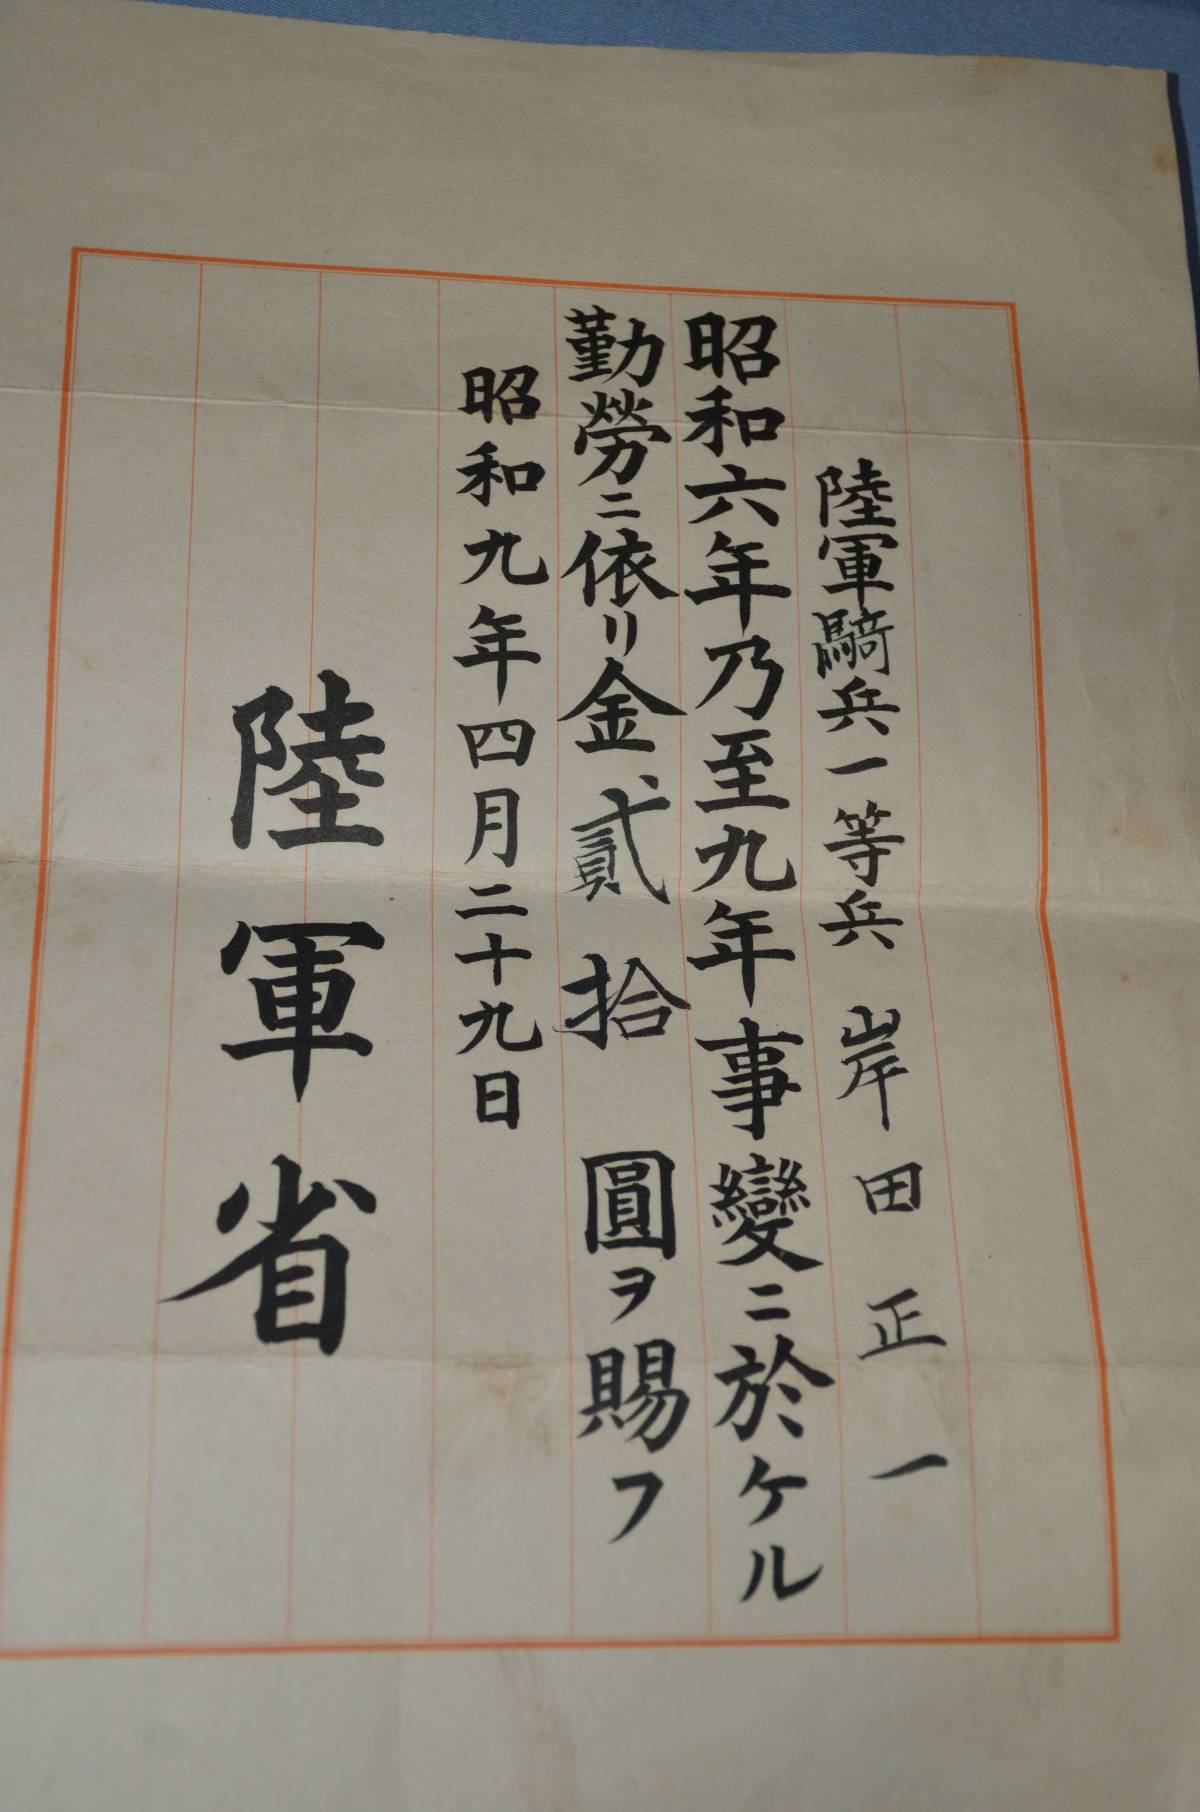 陸軍騎兵一等兵 岸田正一
昭和六年乃至九年事變ニ於ケル
勤勞ニ依リ金貳拾圓ヲ賜フ
昭和九年四月二十九日
陸軍省